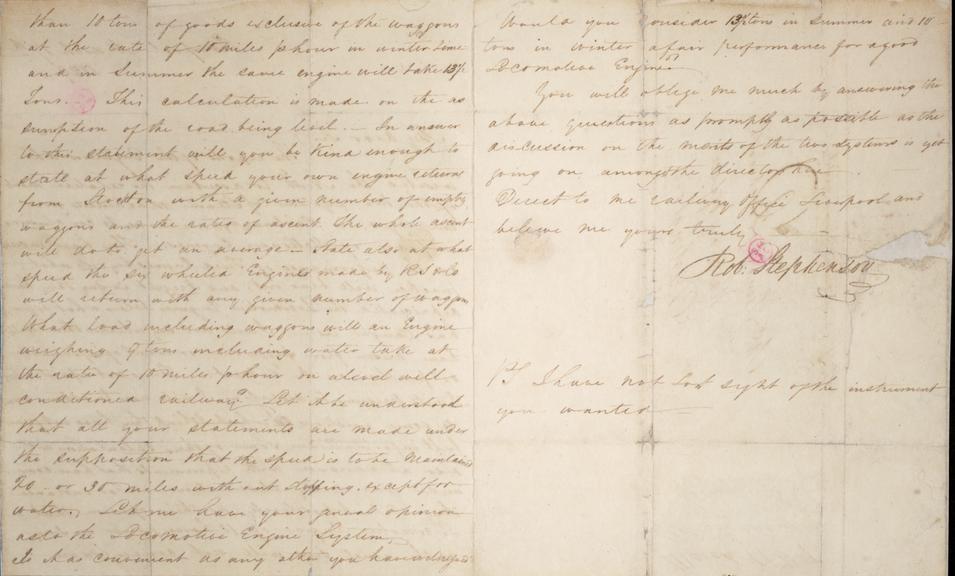 than 10 tons of goods exclusive of the waggons
at the rate of 10 miles p hour in winter time
and in Summer the same engine will take 13½
Tons. This calculation is made on the as
sumption of the road being level. — In answer
to this statement will you be kind enough to
state at what speed your own engine returns
from Stockton with a given number of empty
waggons and the ratio of ascent. The whole ascent
will do to get an average — State also at what
speed the six wheeled Engines made by RS & Co
will return with any given number of waggons
What load including waggons will an Engine
weighing tons including water take at
the rate of 10 miles p hour on a level well
conditioned railway? Let it be understood
that all your statements are made under
the supposition that the speed is to be maintained
20 or 30 miles without stopping, except for
water. Let me have your opinion
as to the Locomotive Engine System
Is it as convenient as any other you have
Would you consider 13½ tons in summer and 10
tons in winter a fair performance for a good
Locomotive Engine
You will oblige me much by answering the
above questions as promptly as possible as the
discussion on the merits of the two systems is yet
going on amongst the directors here
Direct to me railway office Liverpool and
believe me yours truly
Rob. Stephenson
PS I have not lost sight of the instrument
you wanted